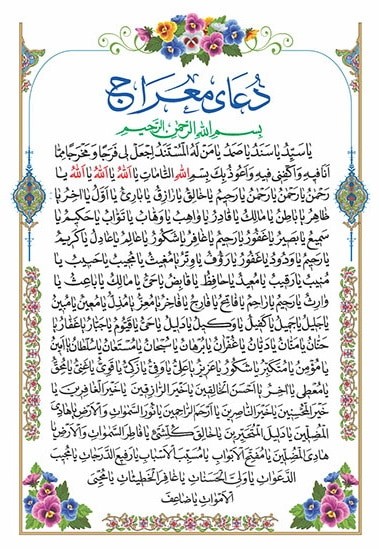 دُعای معراج
بِسْمِ اللهِ الرَّحْمٰنِ الرَّحِیمِ
یا سَیِّدُ یا سَنَدُ یا صَمَدُ یا مَنْ لَهُ الْمُسْتَنَدُ اِجْعَلْ لی فَرَجًا وَ مَخْرَجًا مِمّا
اَنَا فیهِ وَ اکْفِنی فیهِ وَ اَعُوذُ بِكَ بِسْمِ اللهِ التّامّاتِ یا اَللهُ یا اَللهُ یا اَللهُ یا
رَحْمٰنُ یا رَحْمٰنُ یا رَحْمٰنُ یا رَحیمُ یا خالِقُ یا رازِقُ یا بارِئُ یا اَوَّلُ یا اخِرُ یا
ظاهِرُ یا باطِنُ یا مالِكُ یا قادِرُ یا واهِبُ یا وَهّابُ یا تَوّابُ یا حَکیمُ یا
سَمیعُ یا بَصیرُ یا غَفُورُ یا رَحیمُ یا غافِرُ یا شَکُورُ یا عالِمُ یا عادِلُ یا کَریمُ
یا رَحیمُ یا وَدُودُ یا غَفُورُ یا رَؤُفُ یا وِتْرُ یا مُغیثُ یا مُجیبُ یا حَبیبُ یا
مُنیبُ یا رَقیبُ یا مُعیدُ یا حافِظُ یا قابِضُ یا حَیُّ یا مالِكُ یا باعِثُ یا
وارِثُ یا رَحیمُ یا راحِمُ یا فاتِحُ یا فارِجُ یا فاخِرُ یا مُعِزُّ یا مُذِلُّ یا مُعینُ یا مُبینُ
یا جَلیلُ یا جَمیلُ یا کَفیلُ یا وَکیلُ یا دَلیلُ یا حَیُّ یا قَیُّومُ یا جَبّارُ یا غَفّارُ یا
حَنّانُ یا مَنّانُ یا دَیّانُ یا غُفْرانُ یا بُرْهانُ یا سُبْحانُ یا مُسْتَعانُ یا سُلْطانُ یا اَمینُ
یا مُؤْمِنُ یا مُتَکَبِّرُ یا شَکُورُ یا عَزیزُ یا عَلِیُّ یا وَفِیُّ یا زَکِیُّ یا قَوِیُّ یا غَنِیُّ یا مُحِقُّ
یا مُعْطی یا اخِرُ یا اَحْسَنَ الْخالِقینَ یا خَیْرَ الرّازِقینَ یا خَیْرَ الْغافِرینَ یا
خَیْرَ الْمُحْسِنینَ یا خَیْرَ النّاصِرینَ یا اَرْحَمَ الرّاحِمینَ یا نُورَ السَّمٰواتِ وَ الْاَرْضِ یا هادِیَ
الْمُضِلّینَ یا دَلیلَ الْمُتَحَیِّرینَ یا خالِقَ کُلِّ شَیْءٍ یا فاطِرَ السَّمٰواتِ وَ الْاَرْضِ یا
هادِیَ الْمُضِلّینَ یا مُفَتِّحَ الْاَبْوابِ یا مُسَبِّبَ الْاَسْبابِ یا رَفیعَ الدَّرَجاتِ یا مُجیبَ
الدَّعَواتِ یا وَلِیَّ الْحَسَناتِ یا غافِرَ الْخَطیئاتِ یا مُحْیِیَ
الْاَمْواتِ یا ضاعِفَ